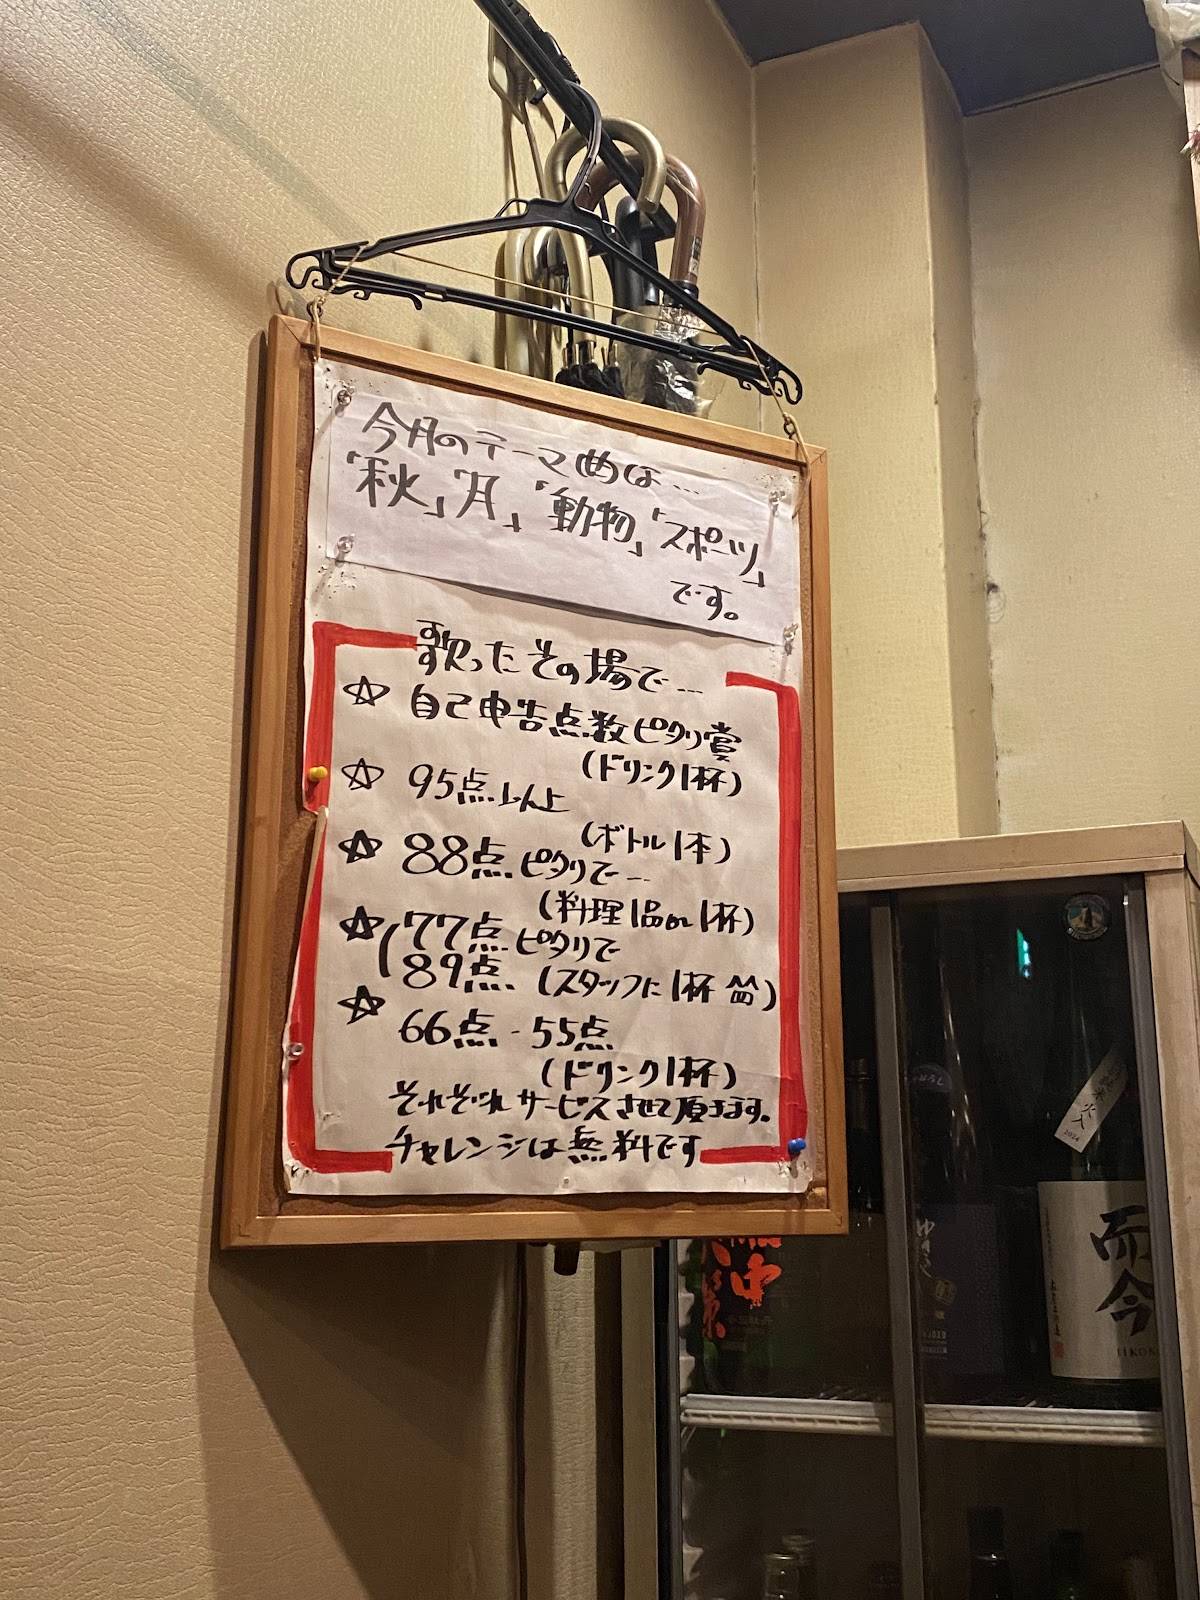 今月のテーマ曲は…
「秋」「月」「動物」「スポーツ」
です。
歌ったその場で…
☆ 自己申告点数ピタリ賞
(ドリンク1杯)
☆ 95点以上
(ボトル1本)
☆ 88点ピタリで…
(料理1品or1杯)
☆ 77点ピタリで
89点 (スタッフに1杯
☆ 66点・55点
(ドリンク1杯)
それぞれサービスさせて頂きます。
チャレンジは無料です
火入
2024
而今